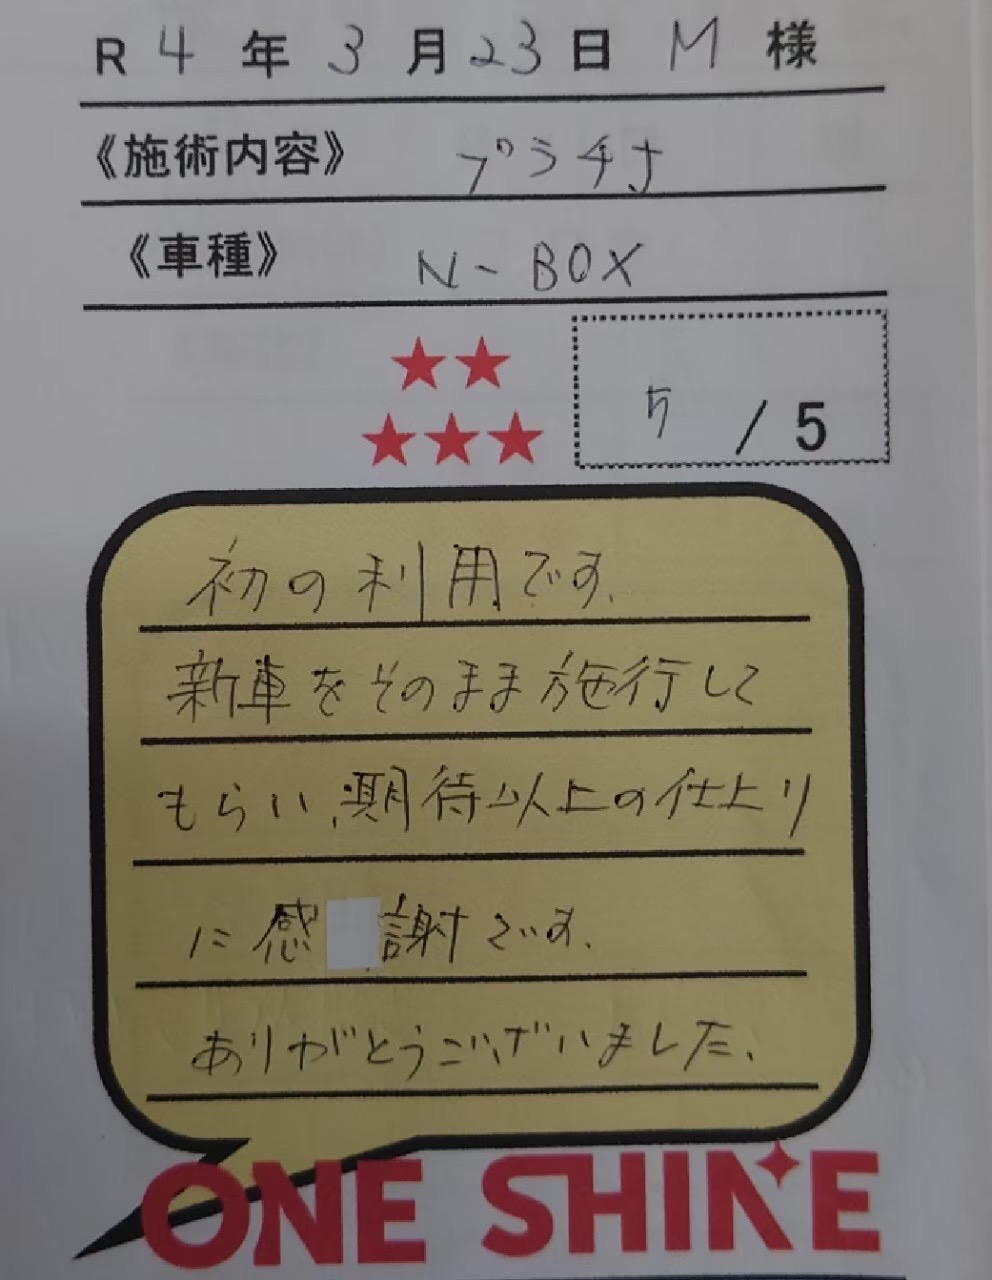 R 4 年 3 月 23 日 M 様
《施術内容》 プラチナ
《車種》 N-BOX
5 / 5
初の利用です.
新車をそのまま施行して
もらい、期待以上の仕上り
に感謝です.
ありがとうございました.
ONE SHINE